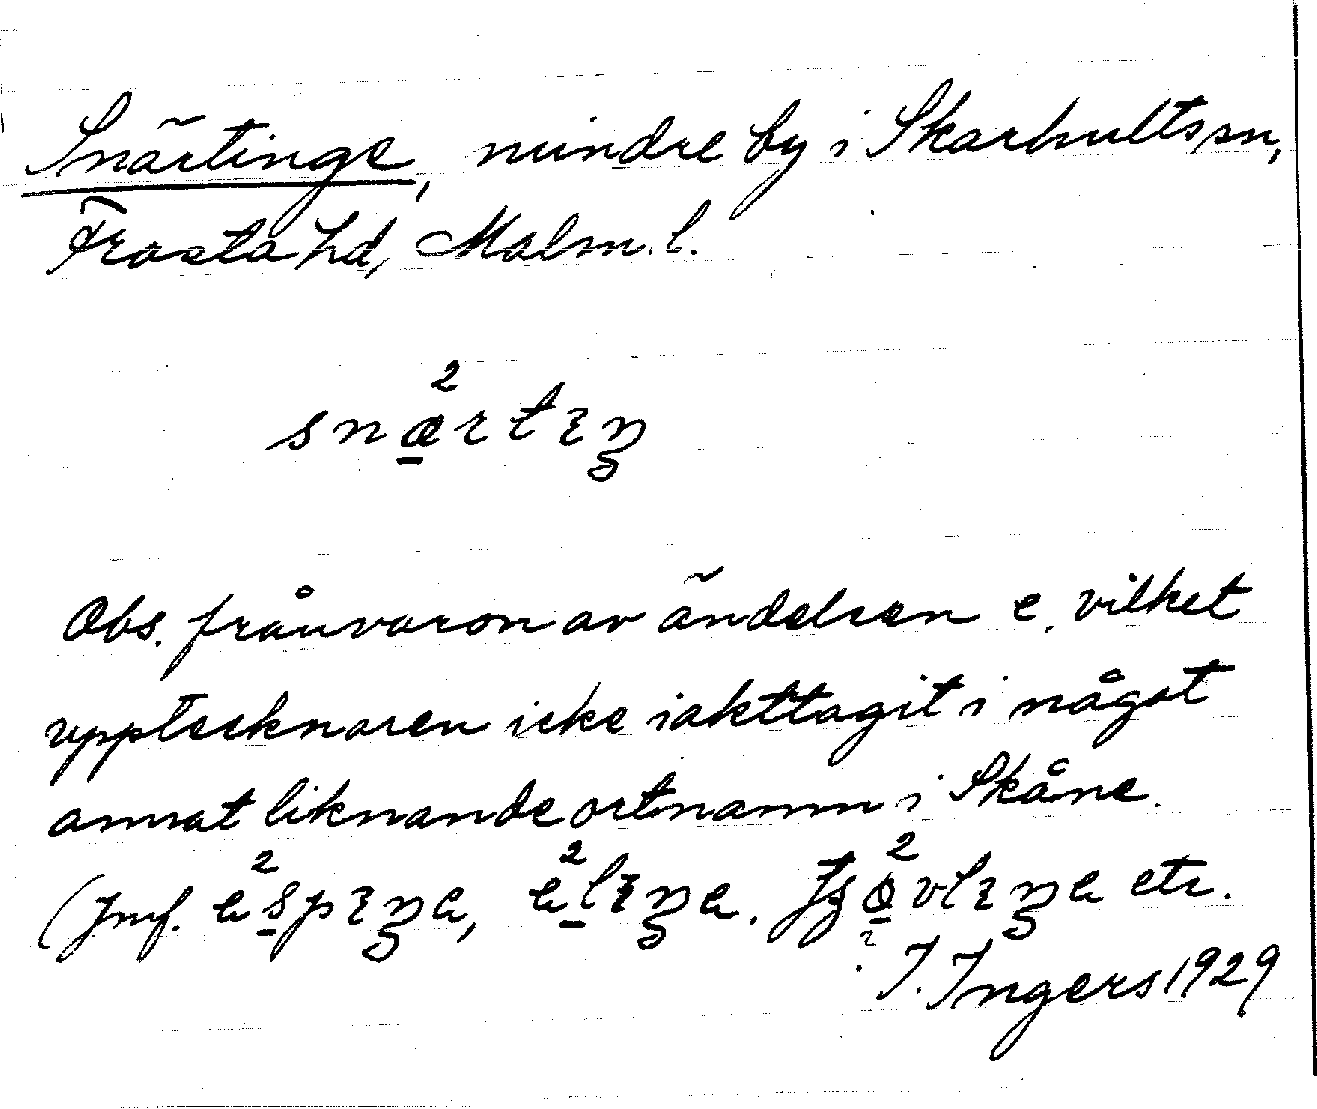 Snärtinge, mindre by i Skarhults sn,
Frosta hd, Malm. l.
2
snærtɪŋ
Obs. frånvaron av ändelsen e, vilket
upptecknaren icke iakttagit i något
annat liknande ortnamn i Skåne.
(Jmf.
etc.
I. Ingers 1929